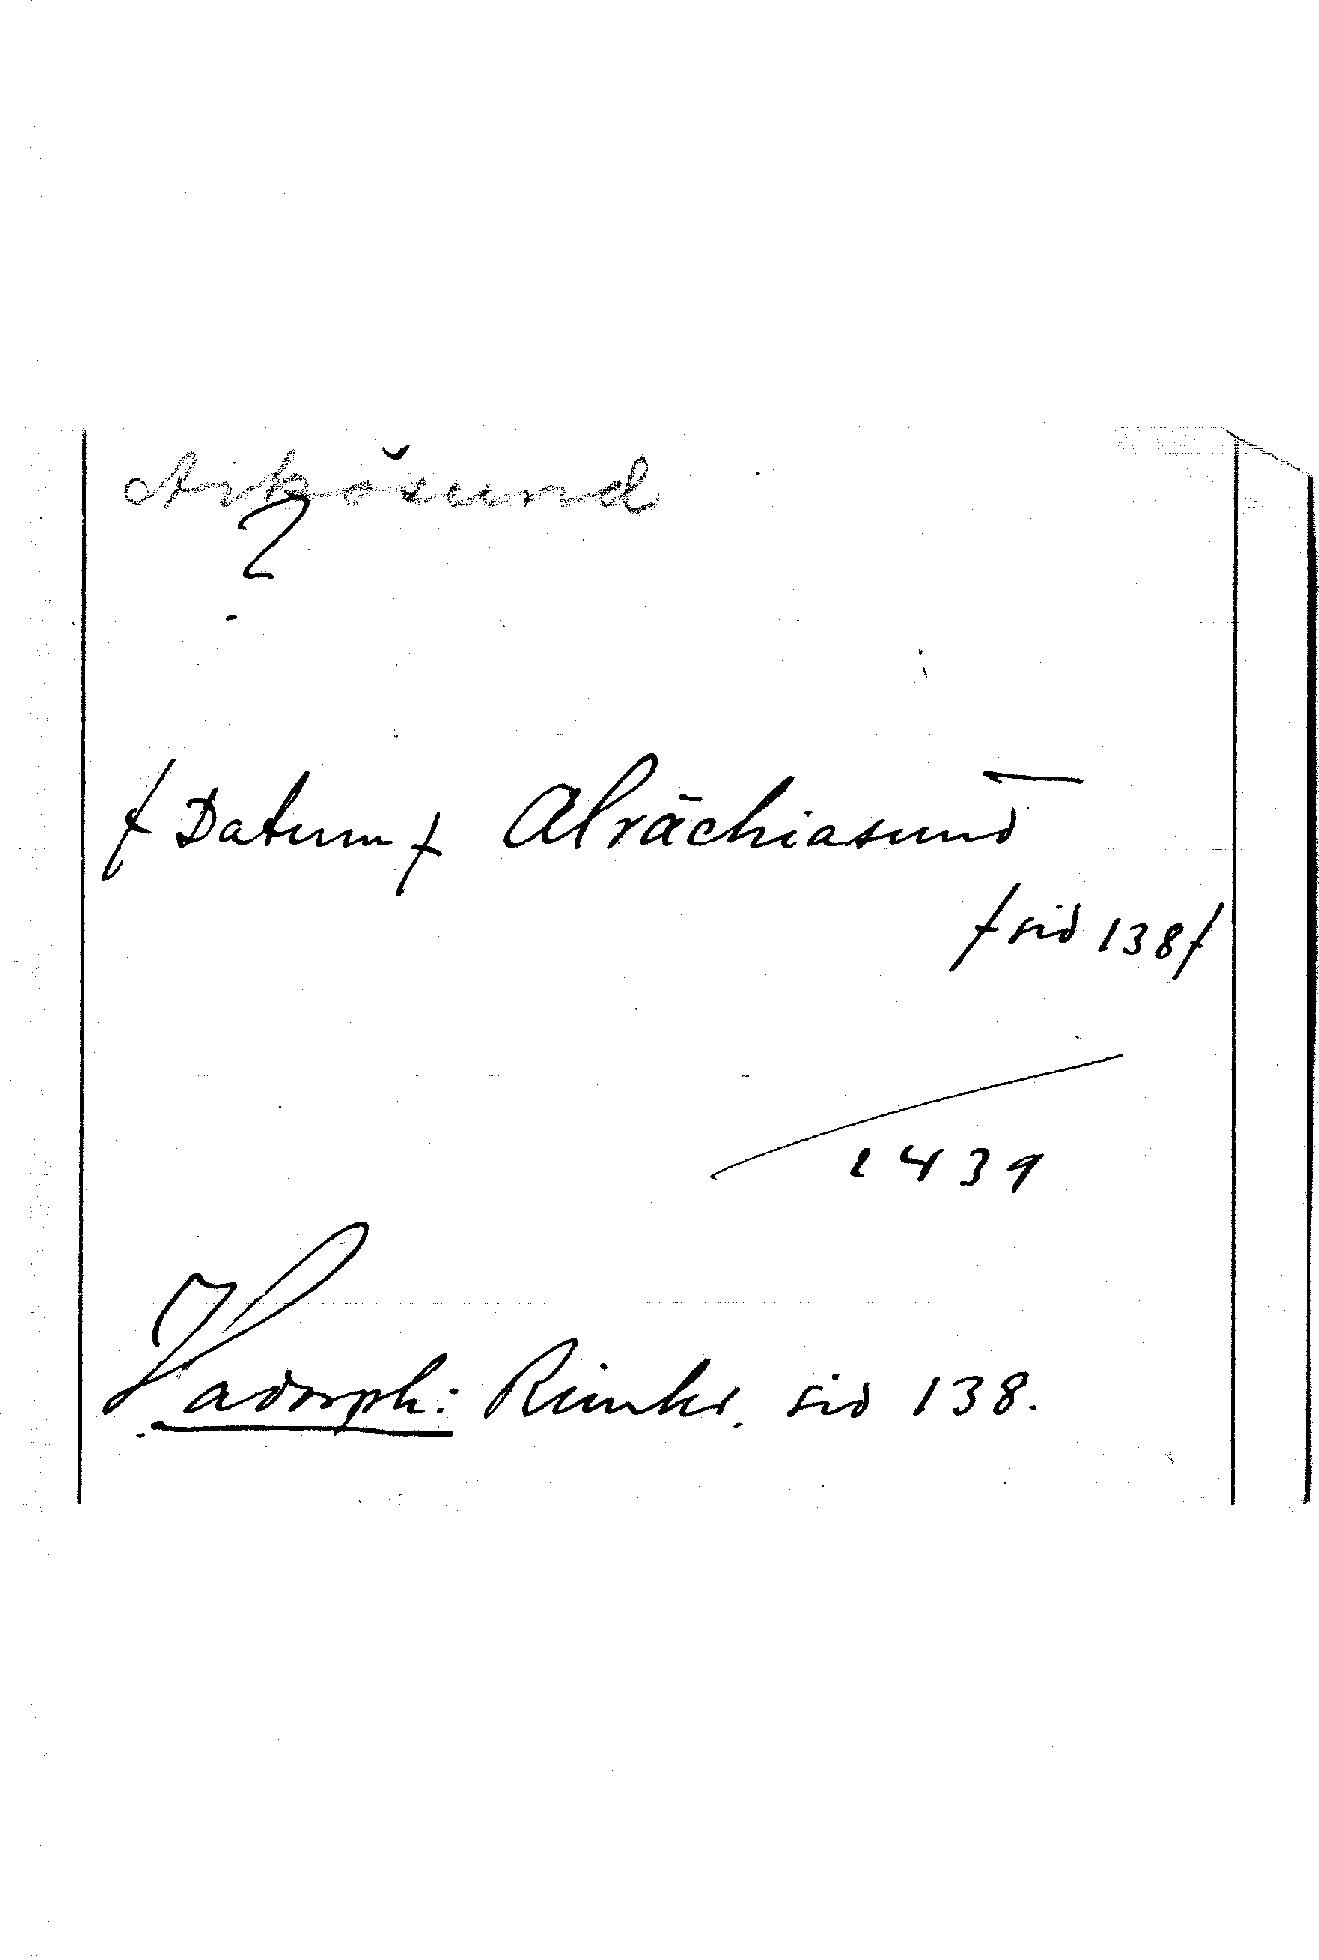 Arkösund
?
/Datum/ Alrächiasund
/sid 138/
1439
Hadorph: Rimkr. sid 138.